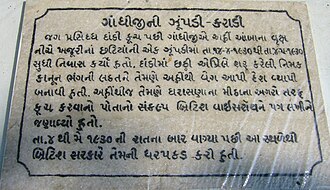 ગાંધીજીની ઝૂંપડી-કરાડી
જગ પ્રસિદ્ધ દાંડી કૂચ પછી ગાંધીજીએ અહીં આંબાના વૃક્ષ
નીચે ખજૂરીનાં છટિયાંની એક ઝૂંપડીમાં તા.૧૪-૪-૧૯૩૦ થી તા.૪-૫-૧૯૩૦
સુધી નિવાસ કર્યો હતો. દાંડીમાં છઠ્ઠી એપ્રિલે શરૂ કરેલી નિમક
કાનૂન ભંગની લડતને તેમણે અહીંથી વેગ આપી દેશ વ્યાપી
બનાવી હતી. અહીંથીજ તેમણે ધરાસણાના મીઠાના અગરો તરફ
કૂચ કરવાનો પોતાનો સંકલ્પ બ્રિટિશ વાઇસરોયને પત્ર લખીને
જણાવ્યો હતો.
તા.૪થી મે ૧૯૩૦ ની રાતના બાર વાગ્યા પછી આ સ્થળેથી
બ્રિટિશ સરકારે તેમની ધરપકડ કરી હતી.